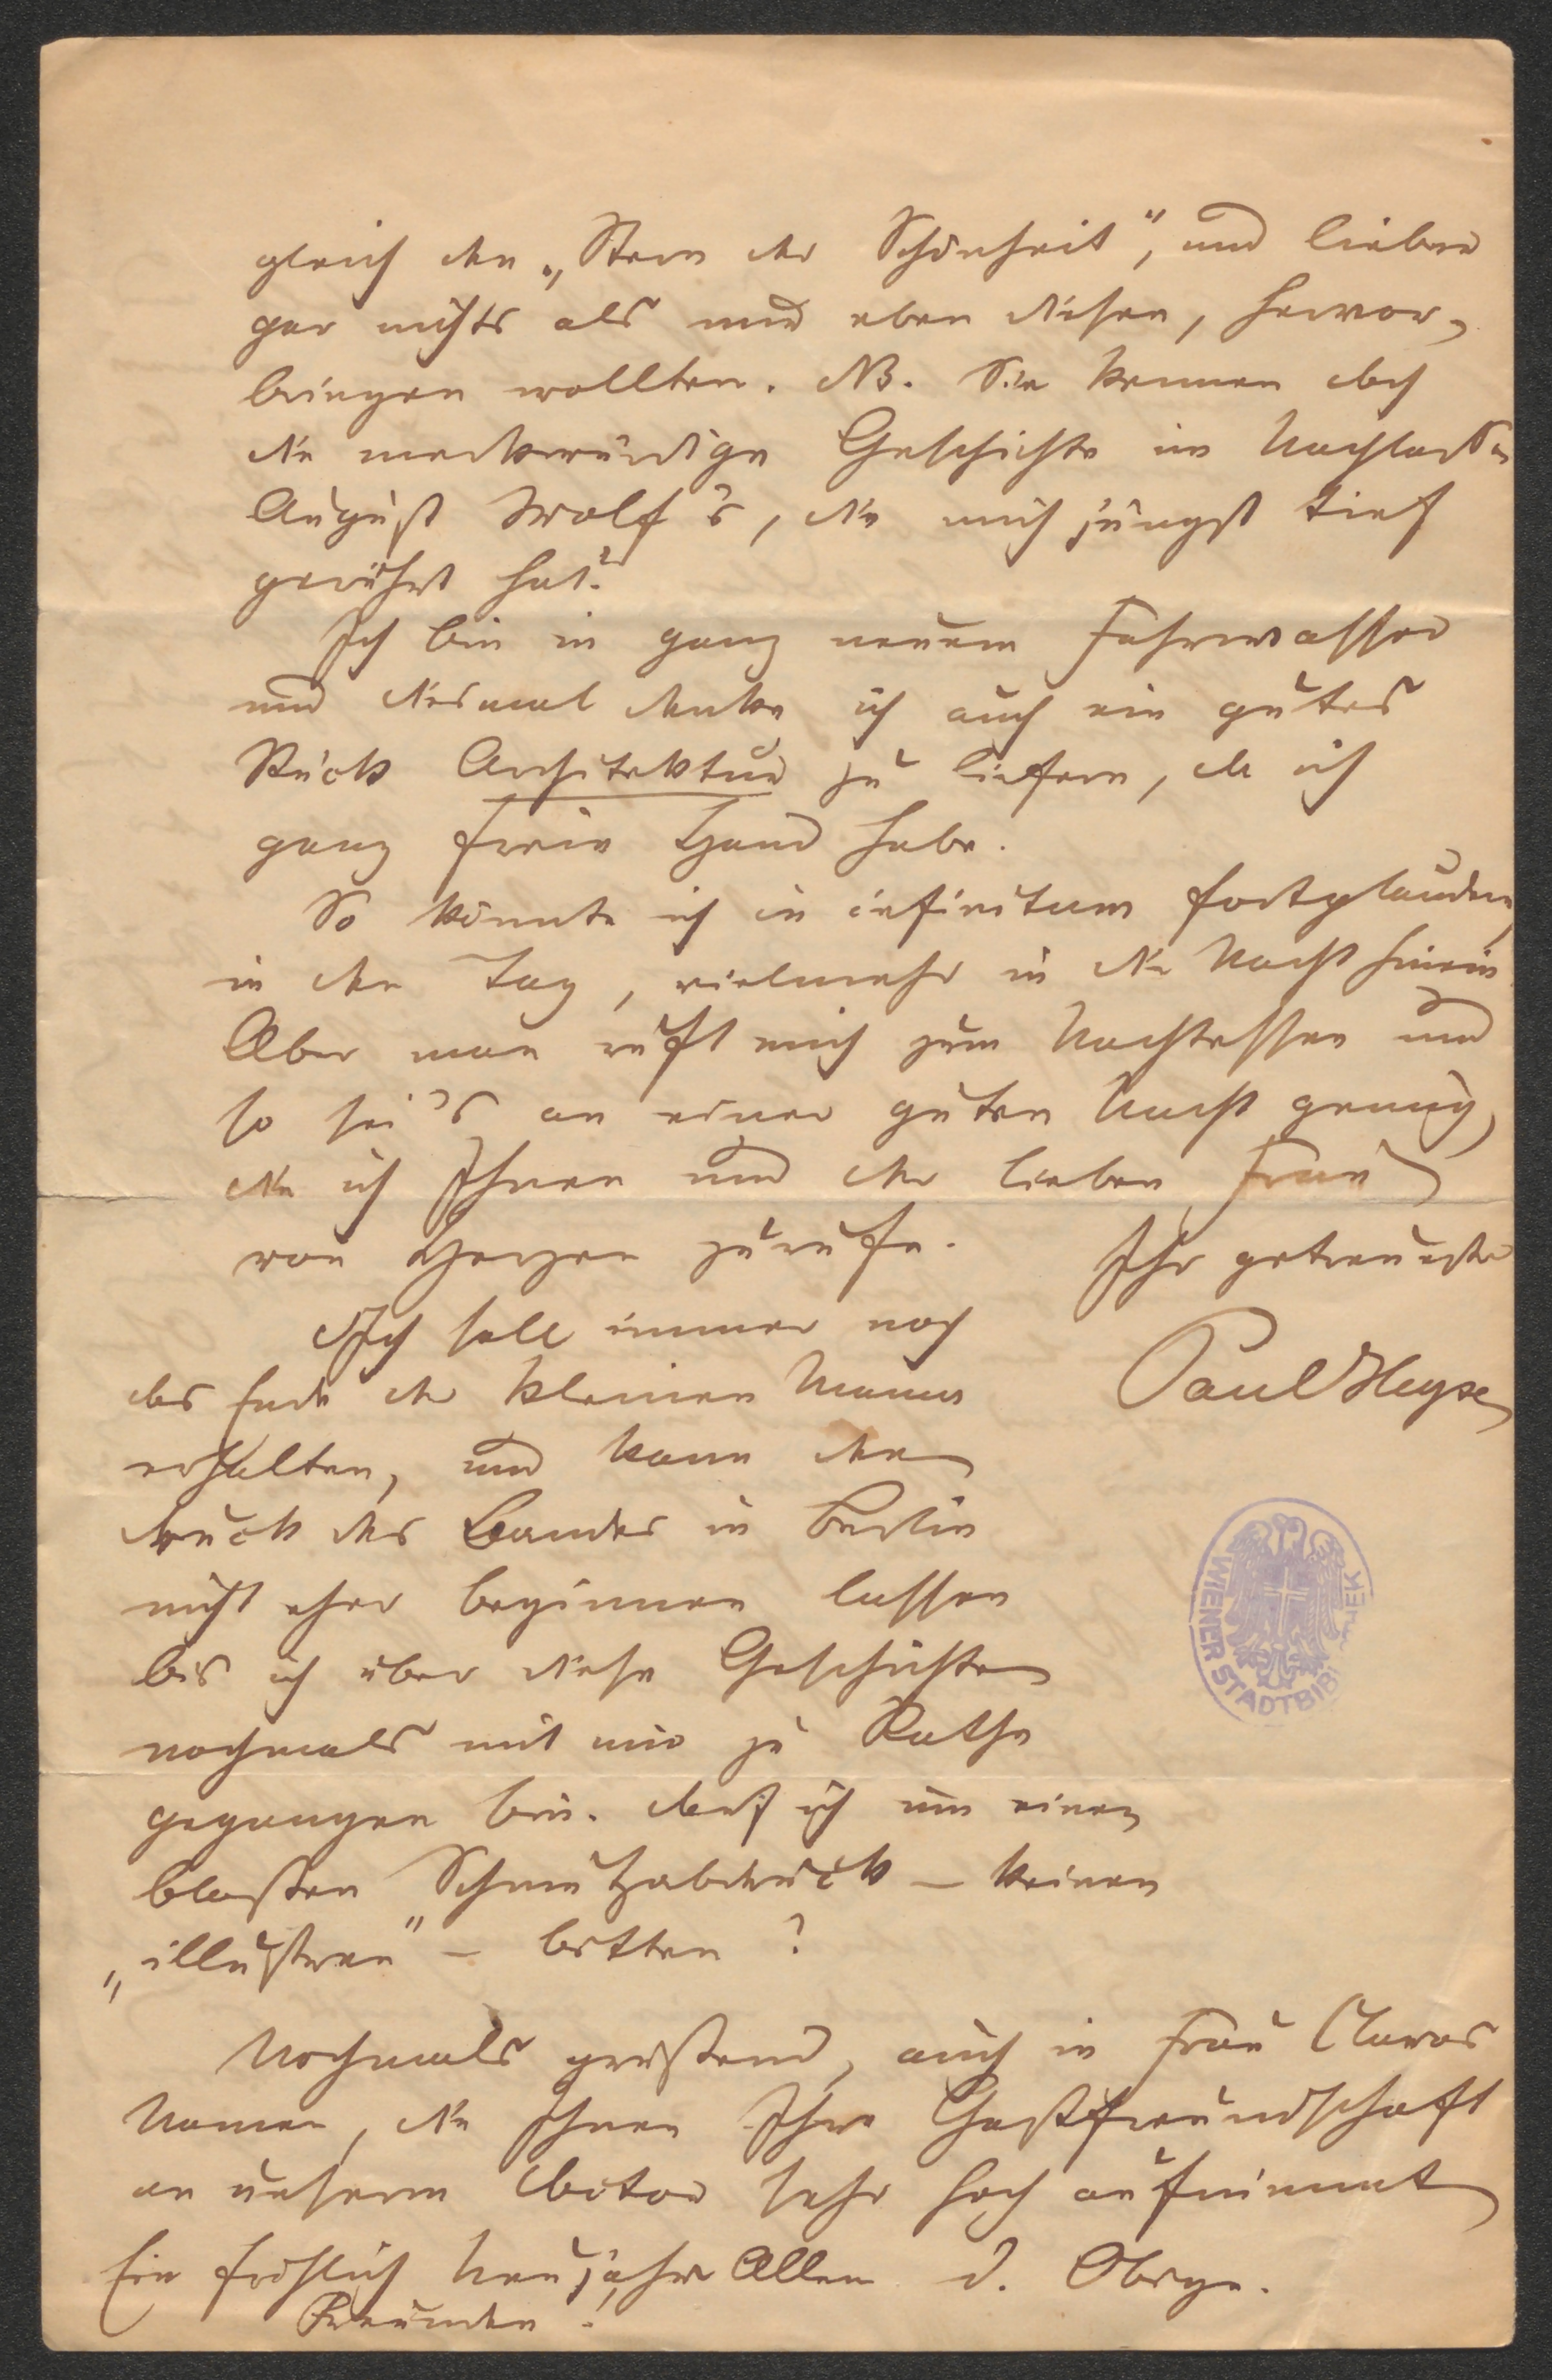 gleich den „Stern der Schönheit“, und lieber
gar nichts als nur eben diesen, hervor-
bringen wollten. NB. Sie kennen doch
die merkwürdige Geschichte im Nachlaß
August Wolf's, die mich jüngst tief
gerührt hat?
Ich bin in ganz neuem Fahrwasser
und diesmal denke ich auch ein gutes
Stück Architektur zu liefern, da ich
ganz freie Hand habe.
So könnte ich in infinitum fortplaudern,
in den Tag, vielmehr in die Nacht hinein.
Aber man ruft mich zum Nachtessen und
so sei's an einer guten Nacht genug,
die ich Ihnen und der lieben Frau
von Herzen zurufe.
Ihr getreuester
Paul Heyse
Ich soll immer noch
das Ende der kleinen Mama
erhalten, und kann den
Druck des Bandes in Berlin
nicht eher beginnen lassen
bis ich über diese Geschichte
nochmals mit mir zu Rathe
gegangen bin. Darf ich um einen
bloßen Schmutzabdruck – keinen
„illustren“ – bitten?
Nochmals grüßend, auch in Frau Claras
Namen, die Ihnen Ihre Gastfreundschaft
an unserm Doctor sehr hoch aufnimmt
Ein fröhlich Neujahr Allen d. Obige.
Freunden!
WIENER STADTBIBLIOTHEK